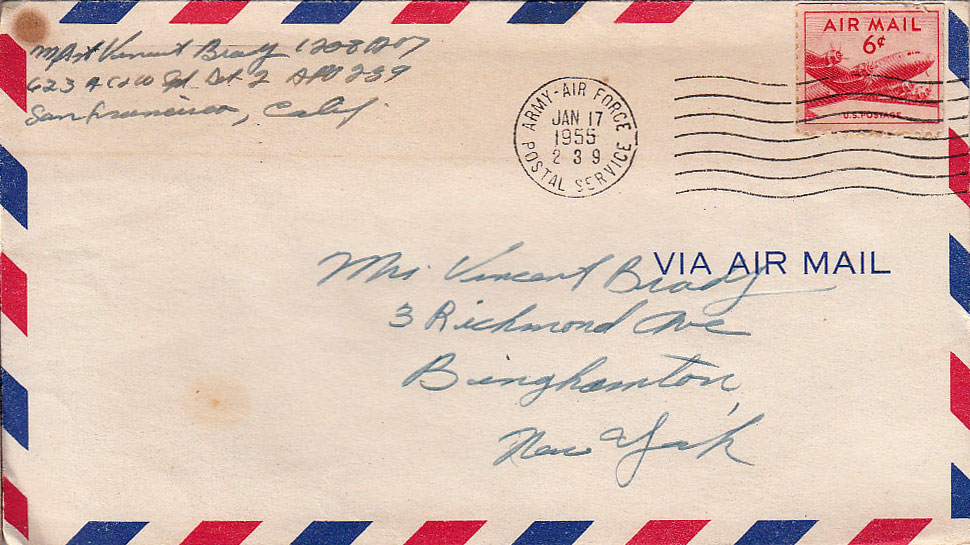 M/Sgt Vincent Brady
623 AC&W Sqd Det 2 APO 239
San Francisco, Calif.
AIR MAIL
6¢
U.S. POSTAGE
ARMY-AIR FORCE
JAN 17
1955
2 3 9
POSTAL SERVICE
VIA AIR MAIL
Mrs Vincent Brady
3 Richmond Ave
Binghamton,
New York